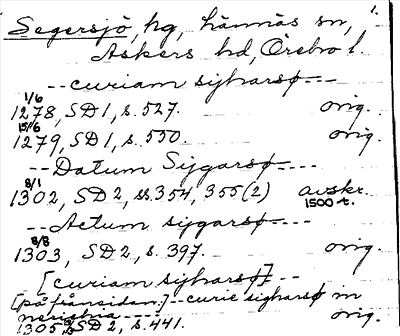 1.
Segersjö, hg, Lännäs sn,
Askers hd, Örebro l.
--curiam sigharsø---
1/6
1278, SD1, s. 527. orig.
15/6
1279, SD1, s. 550. orig.
--Datum Sygarsø----
8/1
1302, SD2, ss. 354, 355(2) avskr.
1500-t.
--Actum sygarsø----
8/8
1303, SD2, s. 397. orig.
[curiam sigharsø]--
[på frånsidan]--curie sigharsø in
nerichia----
1305 SD2, s. 441. orig.